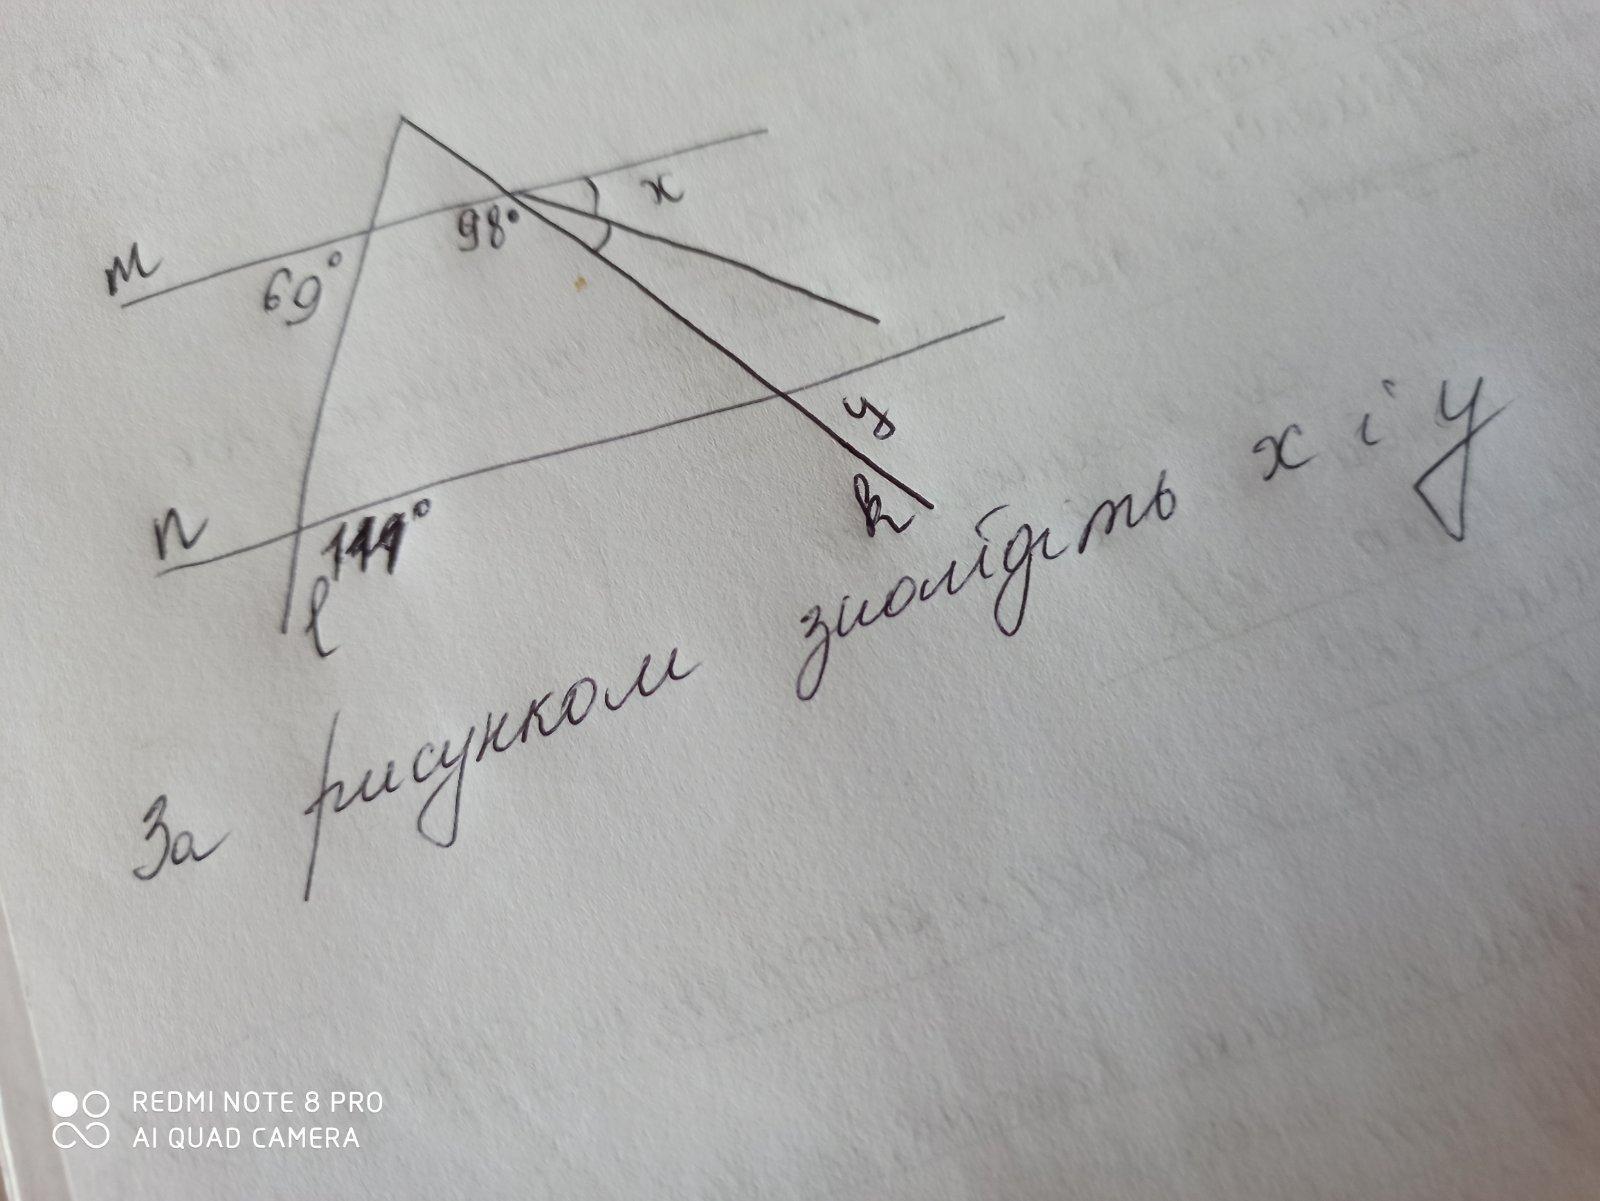 x
98°
m
69°
y
k
n
111°
l
За рисунком знайдіть x і y
REDMI NOTE 8 PRO
AI QUAD CAMERA